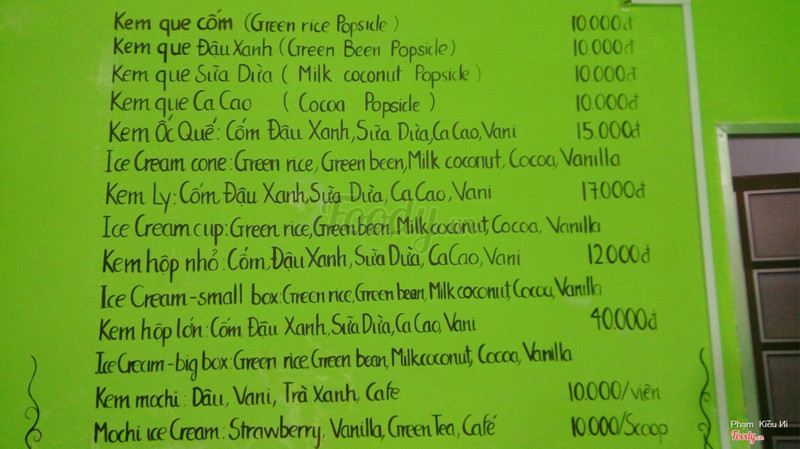 Kem que cốm (Green rice Popsicle) 10.000đ
Kem que Đậu Xanh (Green Been Popsicle) 10.000đ
Kem que Sữa Dừa ( Milk coconut Popsicle ) 10.000đ
Kem que Ca Cao ( Cocoa Popsicle ) 10.000đ
Kem Ốc Quế: Cốm Đậu Xanh, Sữa Dừa, Ca Cao, Vani 15.000đ
Ice Cream cone: Green rice, Green been, Milk coconut, Cocoa, Vanilla
Kem Ly: Cốm, Đậu Xanh, Sữa Dừa, Ca Cao, Vani 17.000đ
Ice Cream cup: Green rice, Green been, Milk coconut, Cocoa, Vanilla
Kem hộp nhỏ: Cốm, Đậu Xanh, Sữa Dừa, Ca Cao, Vani 12000đ
Ice Cream-small box: Green rice, Green bean, Milk coconut, Cocoa, Vanilla
Kem hộp lớn: Cốm Đậu Xanh, Sữa Dừa, Ca Cao, Vani 40.000đ
Ice Cream-big box: Green rice, Green bean, Milk coconut, Cocoa, Vanilla
Kem mochi: Dâu, Vani, Trà Xanh, Cafe 10.000/viên
Mochi ice Cream: Strawberry, Vanilla, Green Tea, Café 10 000/Scoop
Foody.vn
Phạm Kiều Ni
Foody.vn